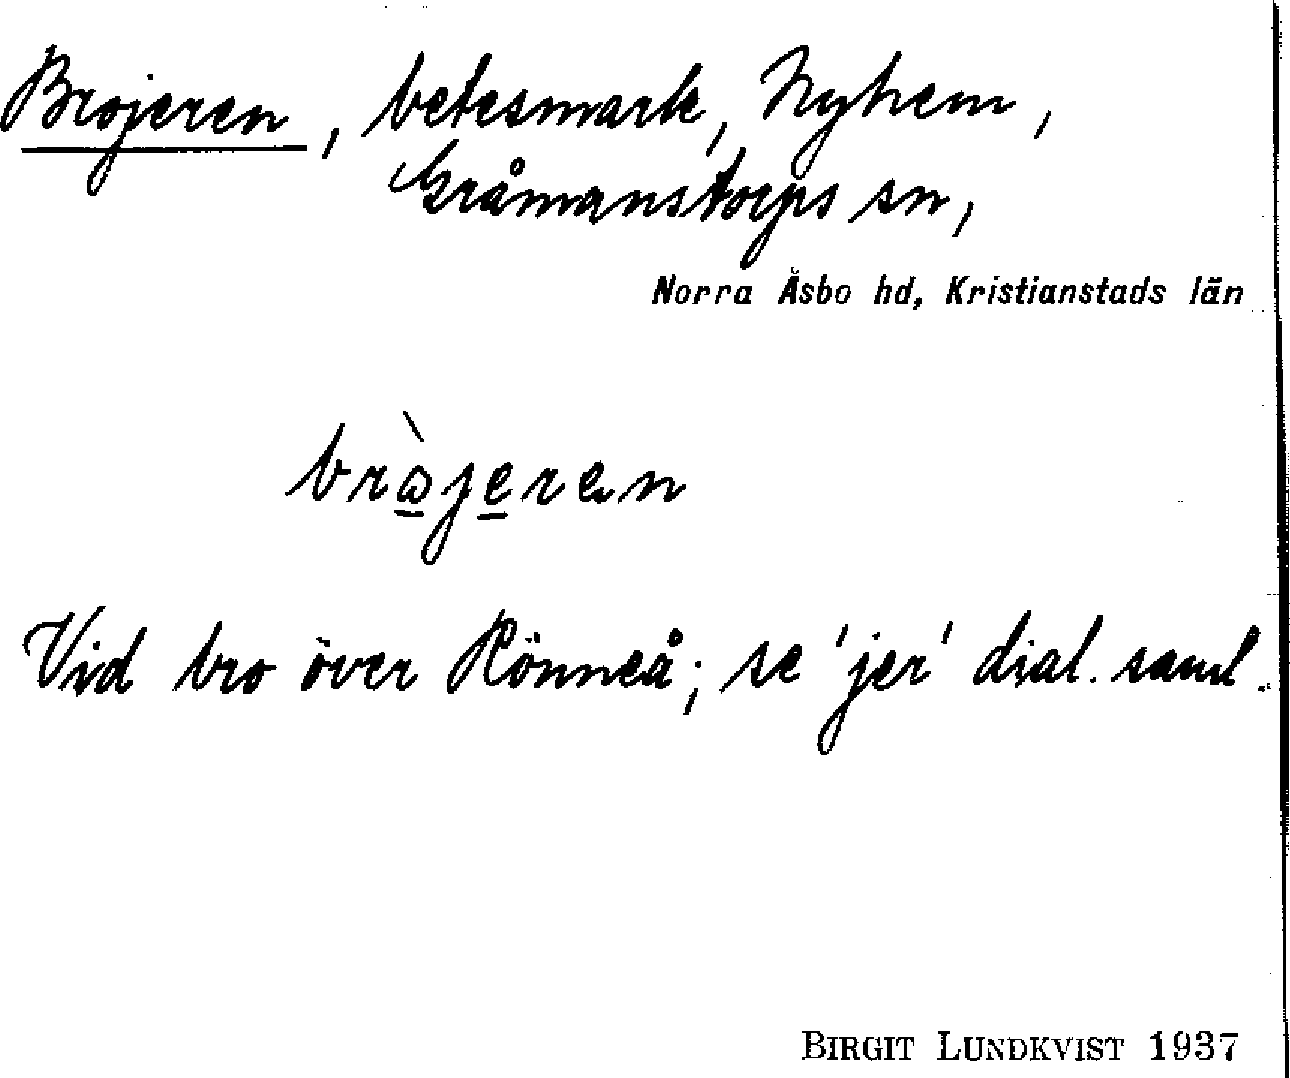 Brojeren, betesmark, Nyhem,
Gråmanstorps sn,
Norra Åsbo hd, Kristianstads län
brɷ̠̀je̠ren
Vid bro över Rönneå; se 'jer' dial. saml.
BIRGIT LUNDKVIST 1937